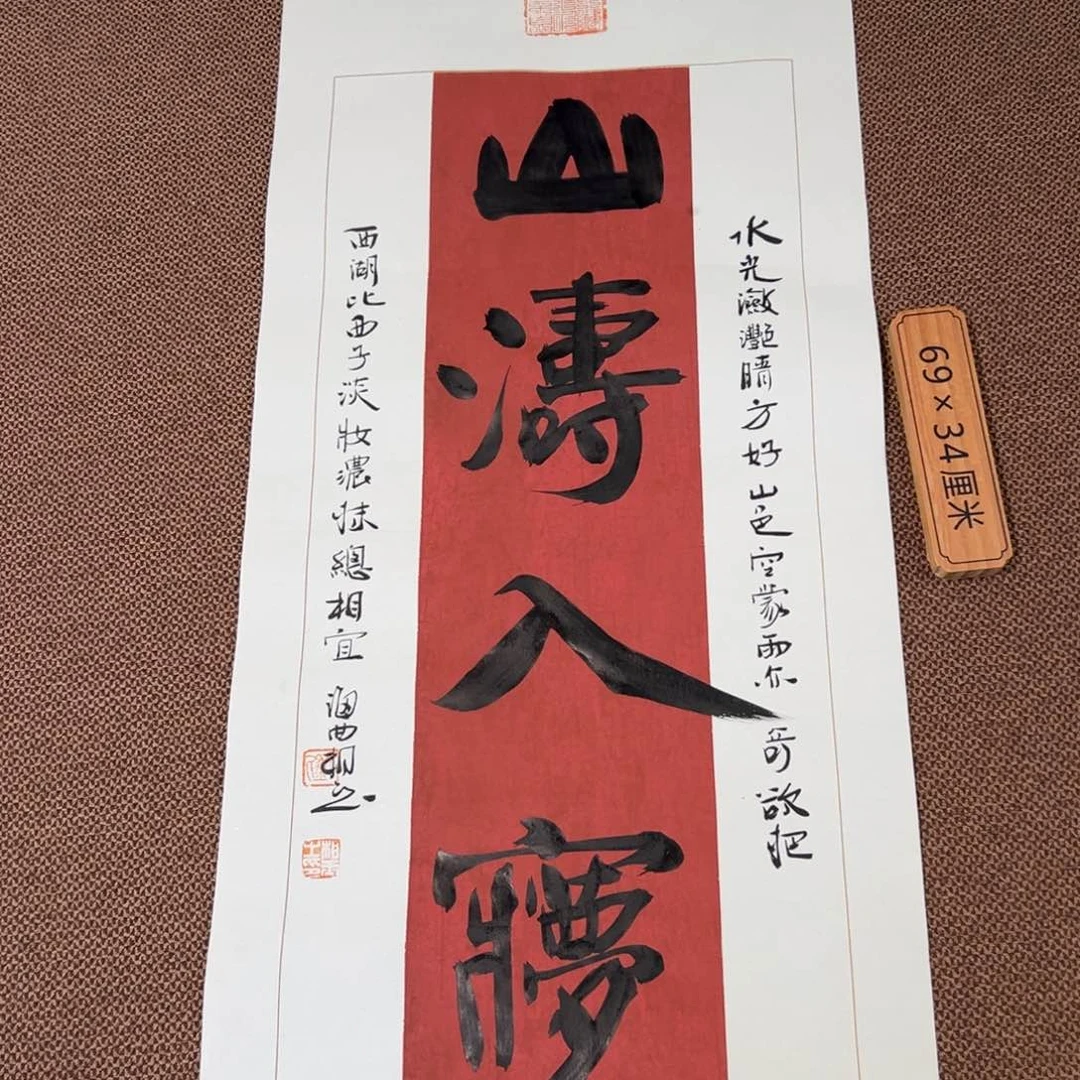 山濤入㝱
水光瀲灧晴方好山色空蒙雨亦奇欲把
西湖比西子淡妝濃抹總相宜
69×34厘米